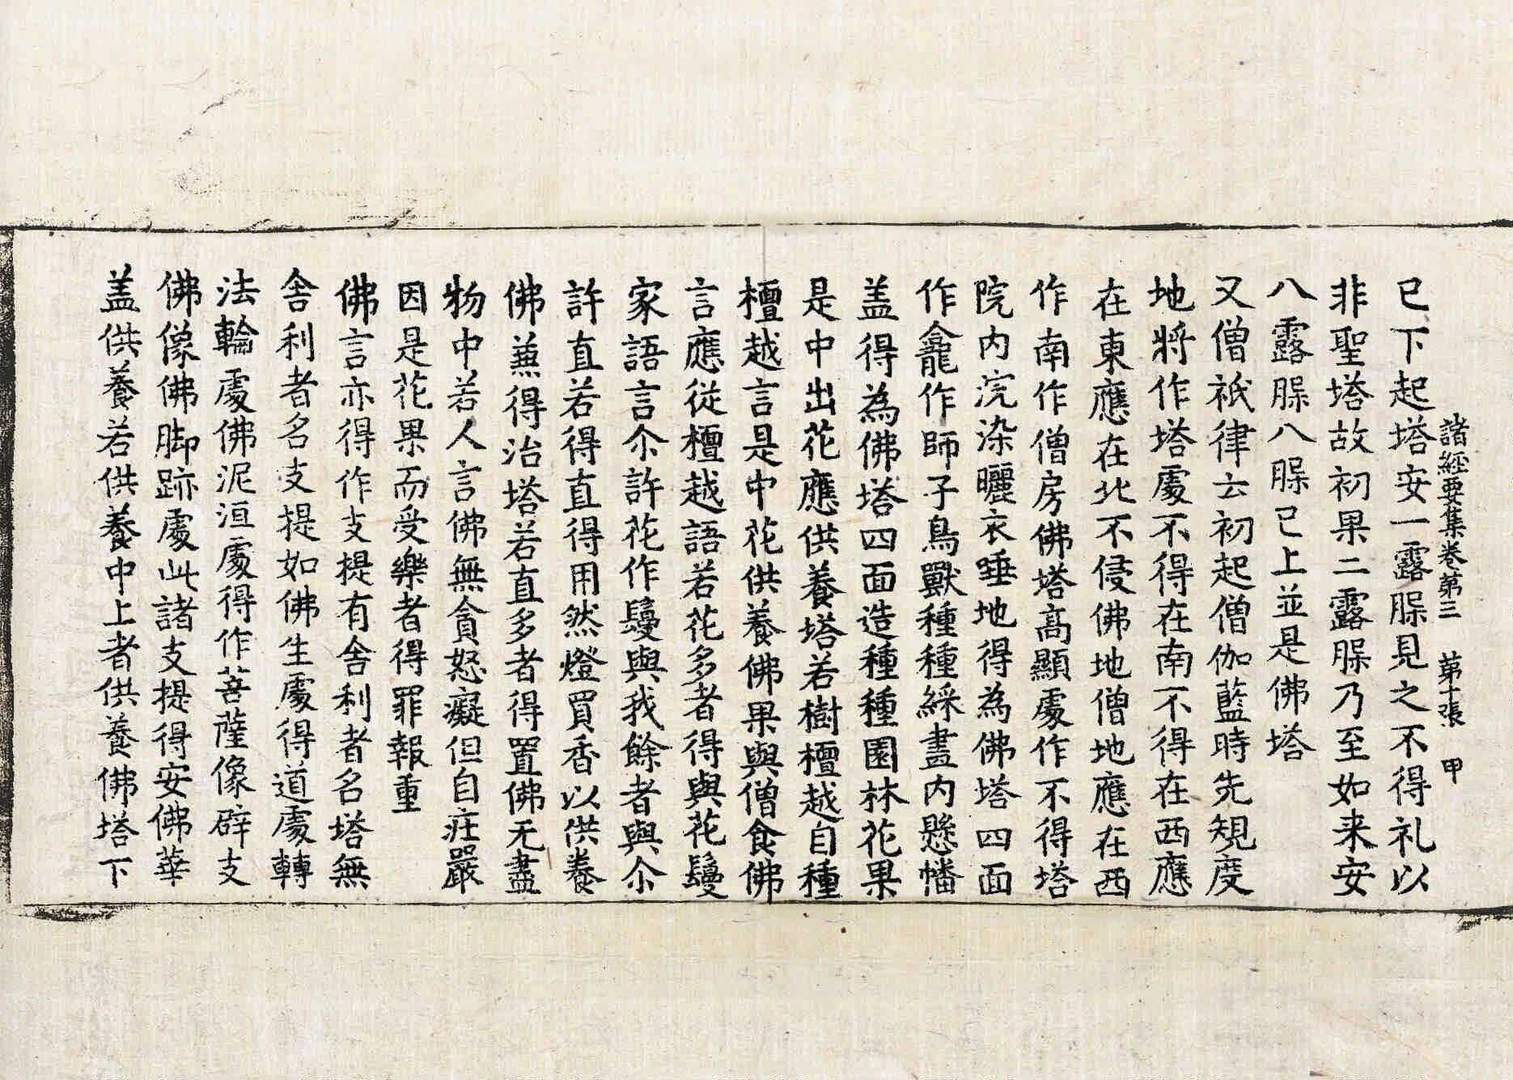 諸經要集卷第三 第十張 甲
已下起塔安一露槃見之不得礼以
非聖塔故初果二露槃乃至如来安
八露槃八槃已上並是佛塔
又僧祇律云初起僧伽藍時先規度
地將作塔處不得在南不得在西應
在東應在北不侵佛地僧地應在西
作南作僧房佛塔高顯處作不得塔
院內浣染曬衣唾地得為佛塔四面
作龕作師子鳥獸種種綵畫內懸幡
盖得為佛塔四面造種種園林花果
是中出花應供養塔若樹檀越自種
檀越言是中花供養佛果與僧食佛
言應從檀越語若花多者得與花鬘
家語言尒許花作鬘與我餘者與尒
許直若得直得用然燈買香以供養
佛兼得治塔若直多者得置佛无盡
物中若人言佛無貪怒癡但自莊嚴
因是花果而受樂者得罪報重
佛言亦得作支提有舍利者名塔無
舍利者名支提如佛生處得道處轉
法輪處佛泥洹處得作菩薩像辟支
佛像佛脚跡處此諸支提得安佛華
盖供養若供養中上者供養佛塔下